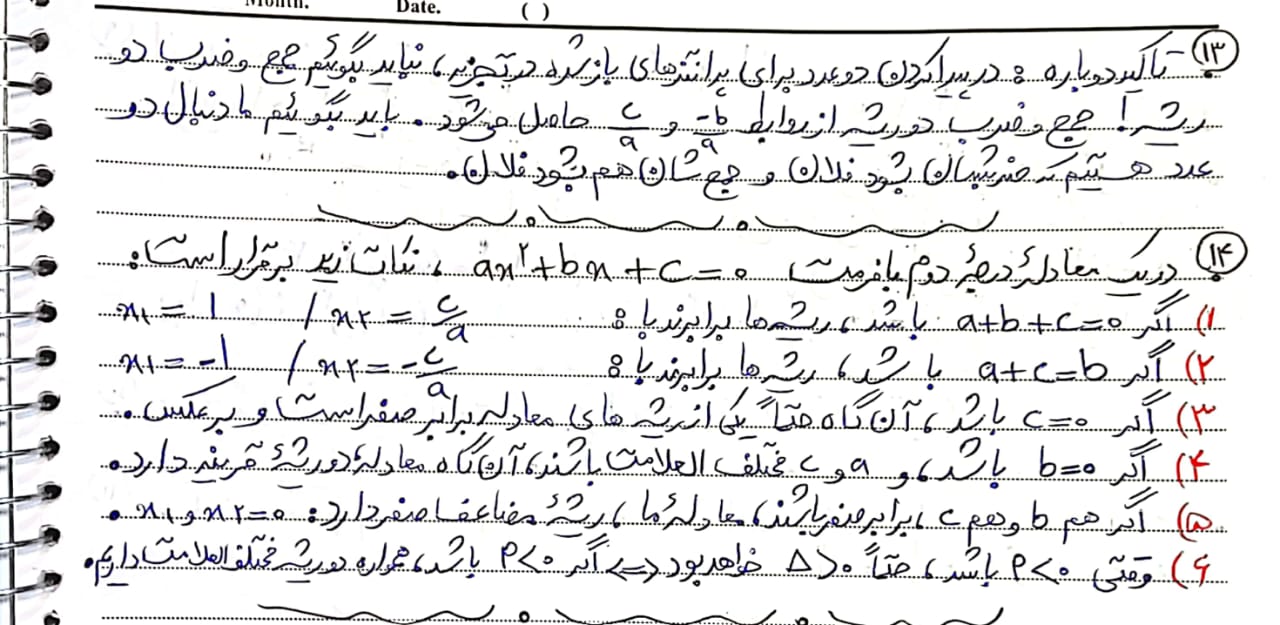 Month. Date. ( )
۱۳- تاکید دوباره: در پیدا کردن دو عدد برای پرانتزهای باز شده در تجزیه، نباید بگوئیم جمع و ضرب دو
ریشه! جمع و ضرب دو ریشه از روابط -b/a و c/a حاصل می‌شود. باید بگوئیم ما دنبال دو
عدد هستیم که ضربشان بشود فلان و جمع شان هم بشود فلان.
۱۴- در یک معادلهٔ درجهٔ دوم با فرمت ax²+bx+c=0، نکات زیر برقرار است:
۱) اگر a+b+c=0 باشد، ریشه‌ها برابرند با: x₁=1 / x₂=c/a
۲) اگر a+c=b باشد، ریشه‌ها برابرند با: x₁=-1 / x₂=-c/a
۳) اگر c=0 باشد، آن‌گاه حتماً یکی از ریشه‌های معادله برابر صفر است و برعکس.
۴) اگر b=0 باشد، و a و c مختلف العلامت باشند، آن‌گاه معادله دو ریشهٔ قرینه دارد.
۵) اگر هم b و هم c، برابر صفر باشند، معادلهٔ ما، ریشهٔ مضاعف صفر دارد: x₁ و x₂=0.
۶) وقتی P<0 باشد، حتماً Δ>0 خواهد بود <=> اگر P<0 باشد، همواره دو ریشه مختلف العلامت داریم.